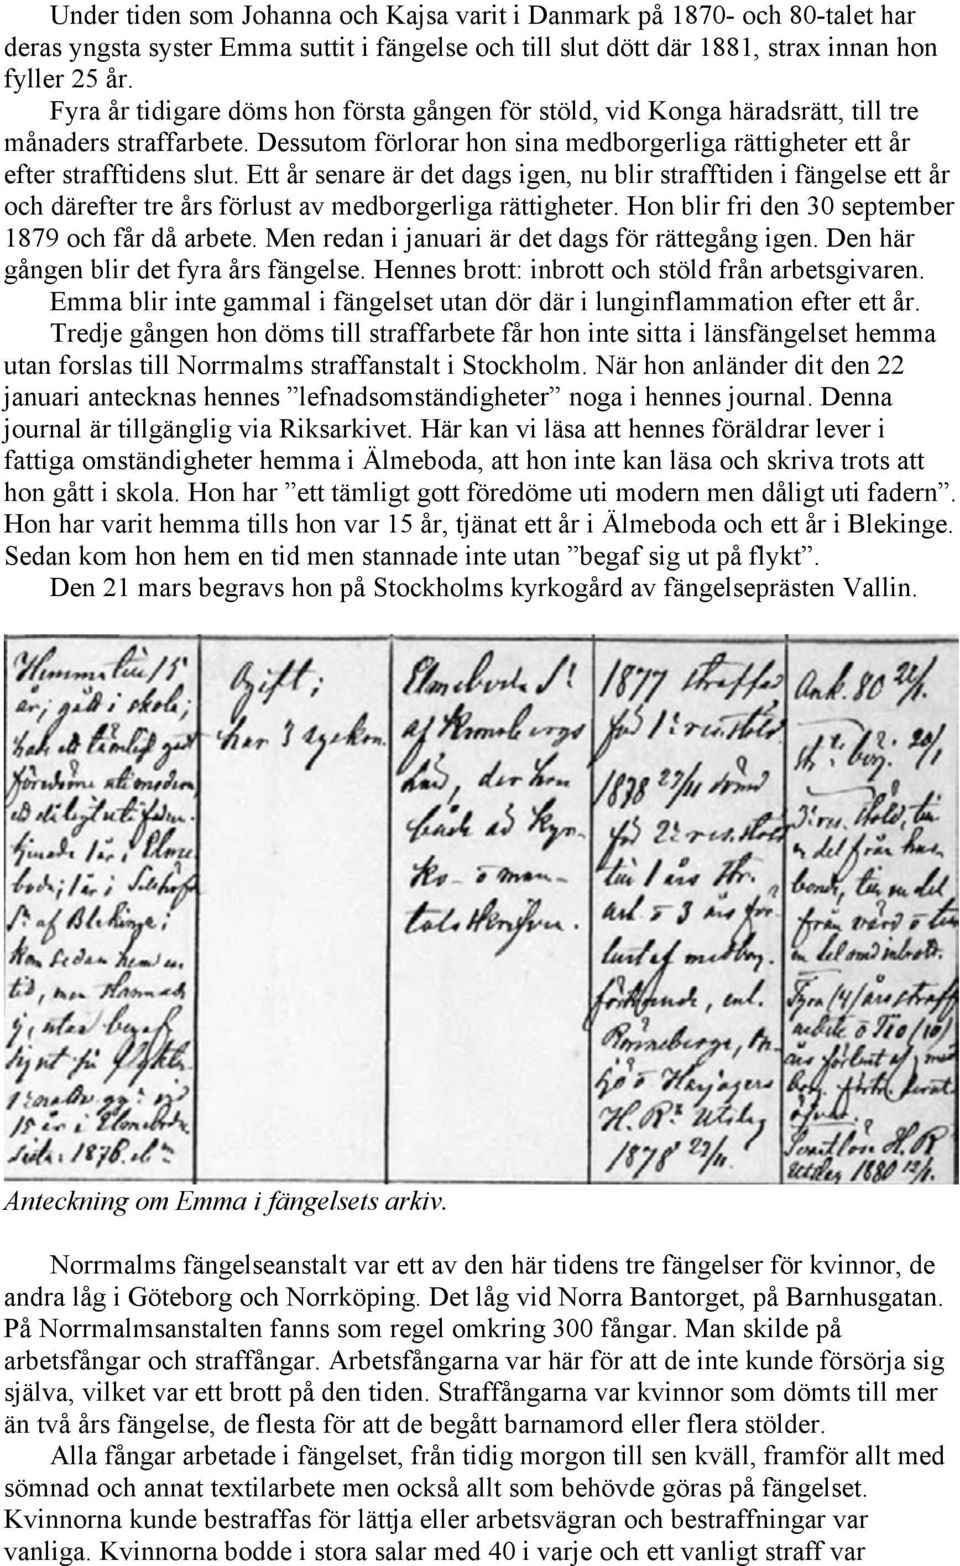 Under tiden som Johanna och Kajsa varit i Danmark på 1870- och 80-talet har
deras yngsta syster Emma suttit i fängelse och till slut dött där 1881, strax innan hon
fyller 25 år.
Fyra år tidigare döms hon första gången för stöld, vid Konga häradsrätt, till tre
månaders straffarbete. Dessutom förlorar hon sina medborgerliga rättigheter ett år
efter strafftidens slut. Ett år senare är det dags igen, nu blir strafftiden i fängelse ett år
och därefter tre års förlust av medborgerliga rättigheter. Hon blir fri den 30 september
1879 och får då arbete. Men redan i januari är det dags för rättegång igen. Den här
gången blir det fyra års fängelse. Hennes brott: inbrott och stöld från arbetsgivaren.
Emma blir inte gammal i fängelset utan dör där i lunginflammation efter ett år.
Tredje gången hon döms till straffarbete får hon inte sitta i länsfängelset hemma
utan forslas till Norrmalms straffanstalt i Stockholm. När hon anländer dit den 22
januari antecknas hennes ”lefnadsomständigheter” noga i hennes journal. Denna
journal är tillgänglig via Riksarkivet. Här kan vi läsa att hennes föräldrar lever i
fattiga omständigheter hemma i Älmeboda, att hon inte kan läsa och skriva trots att
hon gått i skola. Hon har ”ett tämligt gott föredöme uti modern men dåligt uti fadern”.
Hon har varit hemma tills hon var 15 år, tjänat ett år i Älmeboda och ett år i Blekinge.
Sedan kom hon hem en tid men stannade inte utan ”begaf sig ut på flykt”.
Den 21 mars begravs hon på Stockholms kyrkogård av fängelseprästen Vallin.
Hemma till 15
år; gått i skola;
haft ett tämligt godt
föredöme uti modern,
ett dåligt uti fadern.
tjenade 1 år i Elme
boda; 1 år i
af Blekinge;
kom sedan hem en
tid, men stannade
ej, utan begaf
15 år i Elmeboda
sista: 1876.
Ogift;
har 3 syskon.
Elmeboda S:
af Kronobergs
län, der hon
både är kyr-
ko- o man-
talsskrifven.
1877 straffad
för 1:a res. stöld.
1878 27/11 dömd
för 2:a res. stöld
till 1 års str.
arb. o 3 års för
lust af medbog.
förtroende, enl.
Könneberga,
H. R:s Utslag
1878 27/11.
Ank. 80 22/1.
str. börj. 20/1
3:e res. stöld, till
en del från hus
bonde, till en del
från o till
en del med inbrott.
Fyra /4/ års straff
arbete o Tio /10/
års förlust af med
borg. förtr.
öfver.
H. R
Utslag 1880 12/1.
Anteckning om Emma i fängelsets arkiv.
Norrmalms fängelseanstalt var ett av den här tidens tre fängelser för kvinnor, de
andra låg i Göteborg och Norrköping. Det låg vid Norra Bantorget, på Barnhusgatan.
På Norrmalmsanstalten fanns som regel omkring 300 fångar. Man skilde på
arbetsfångar och straffångar. Arbetsfångarna var här för att de inte kunde försörja sig
själva, vilket var ett brott på den tiden. Straffångarna var kvinnor som dömts till mer
än två års fängelse, de flesta för att de begått barnamord eller flera stölder.
Alla fångar arbetade i fängelset, från tidig morgon till sen kväll, framför allt med
sömnad och annat textilarbete men också allt som behövde göras på fängelset.
Kvinnorna kunde bestraffas för lättja eller arbetsvägran och bestraffningar var
vanliga. Kvinnorna bodde i stora salar med 40 i varje och ett vanligt straff var